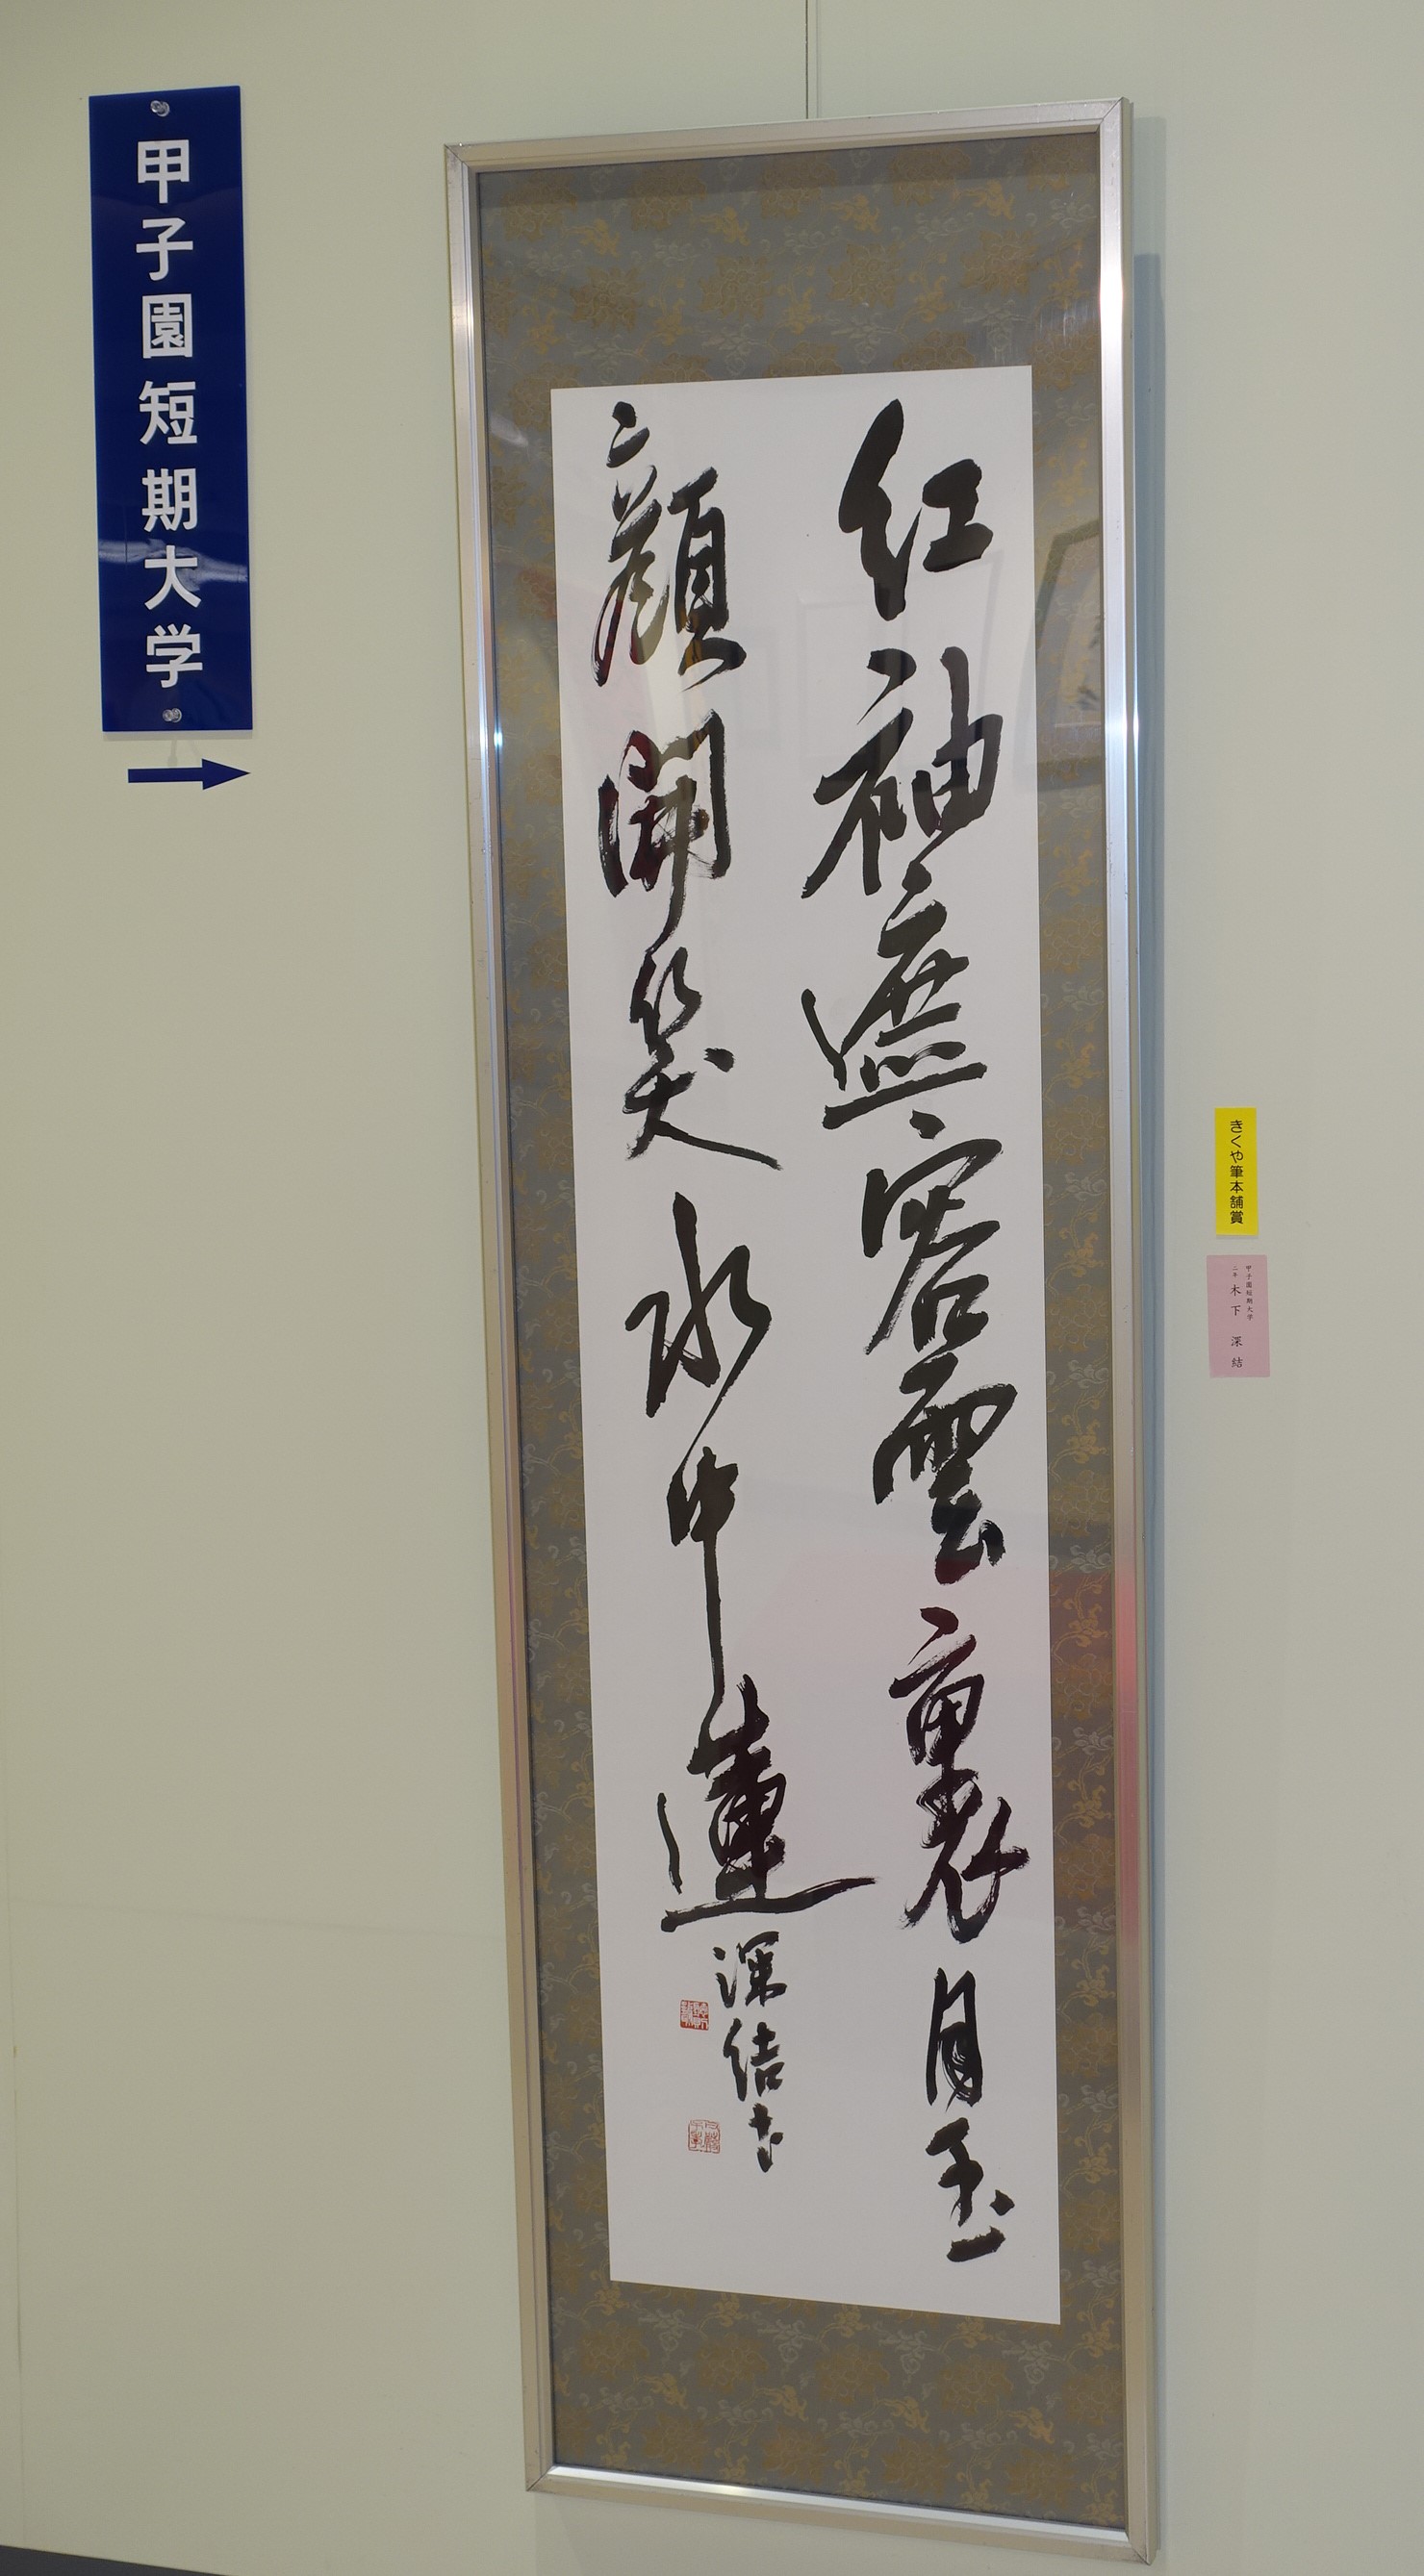 甲子園短期大学
紅袖遮容雲裏月玉
顔開笑水中蓮
深結書
きくや筆本舗賞
甲子園短期大学
二年 木下 深結